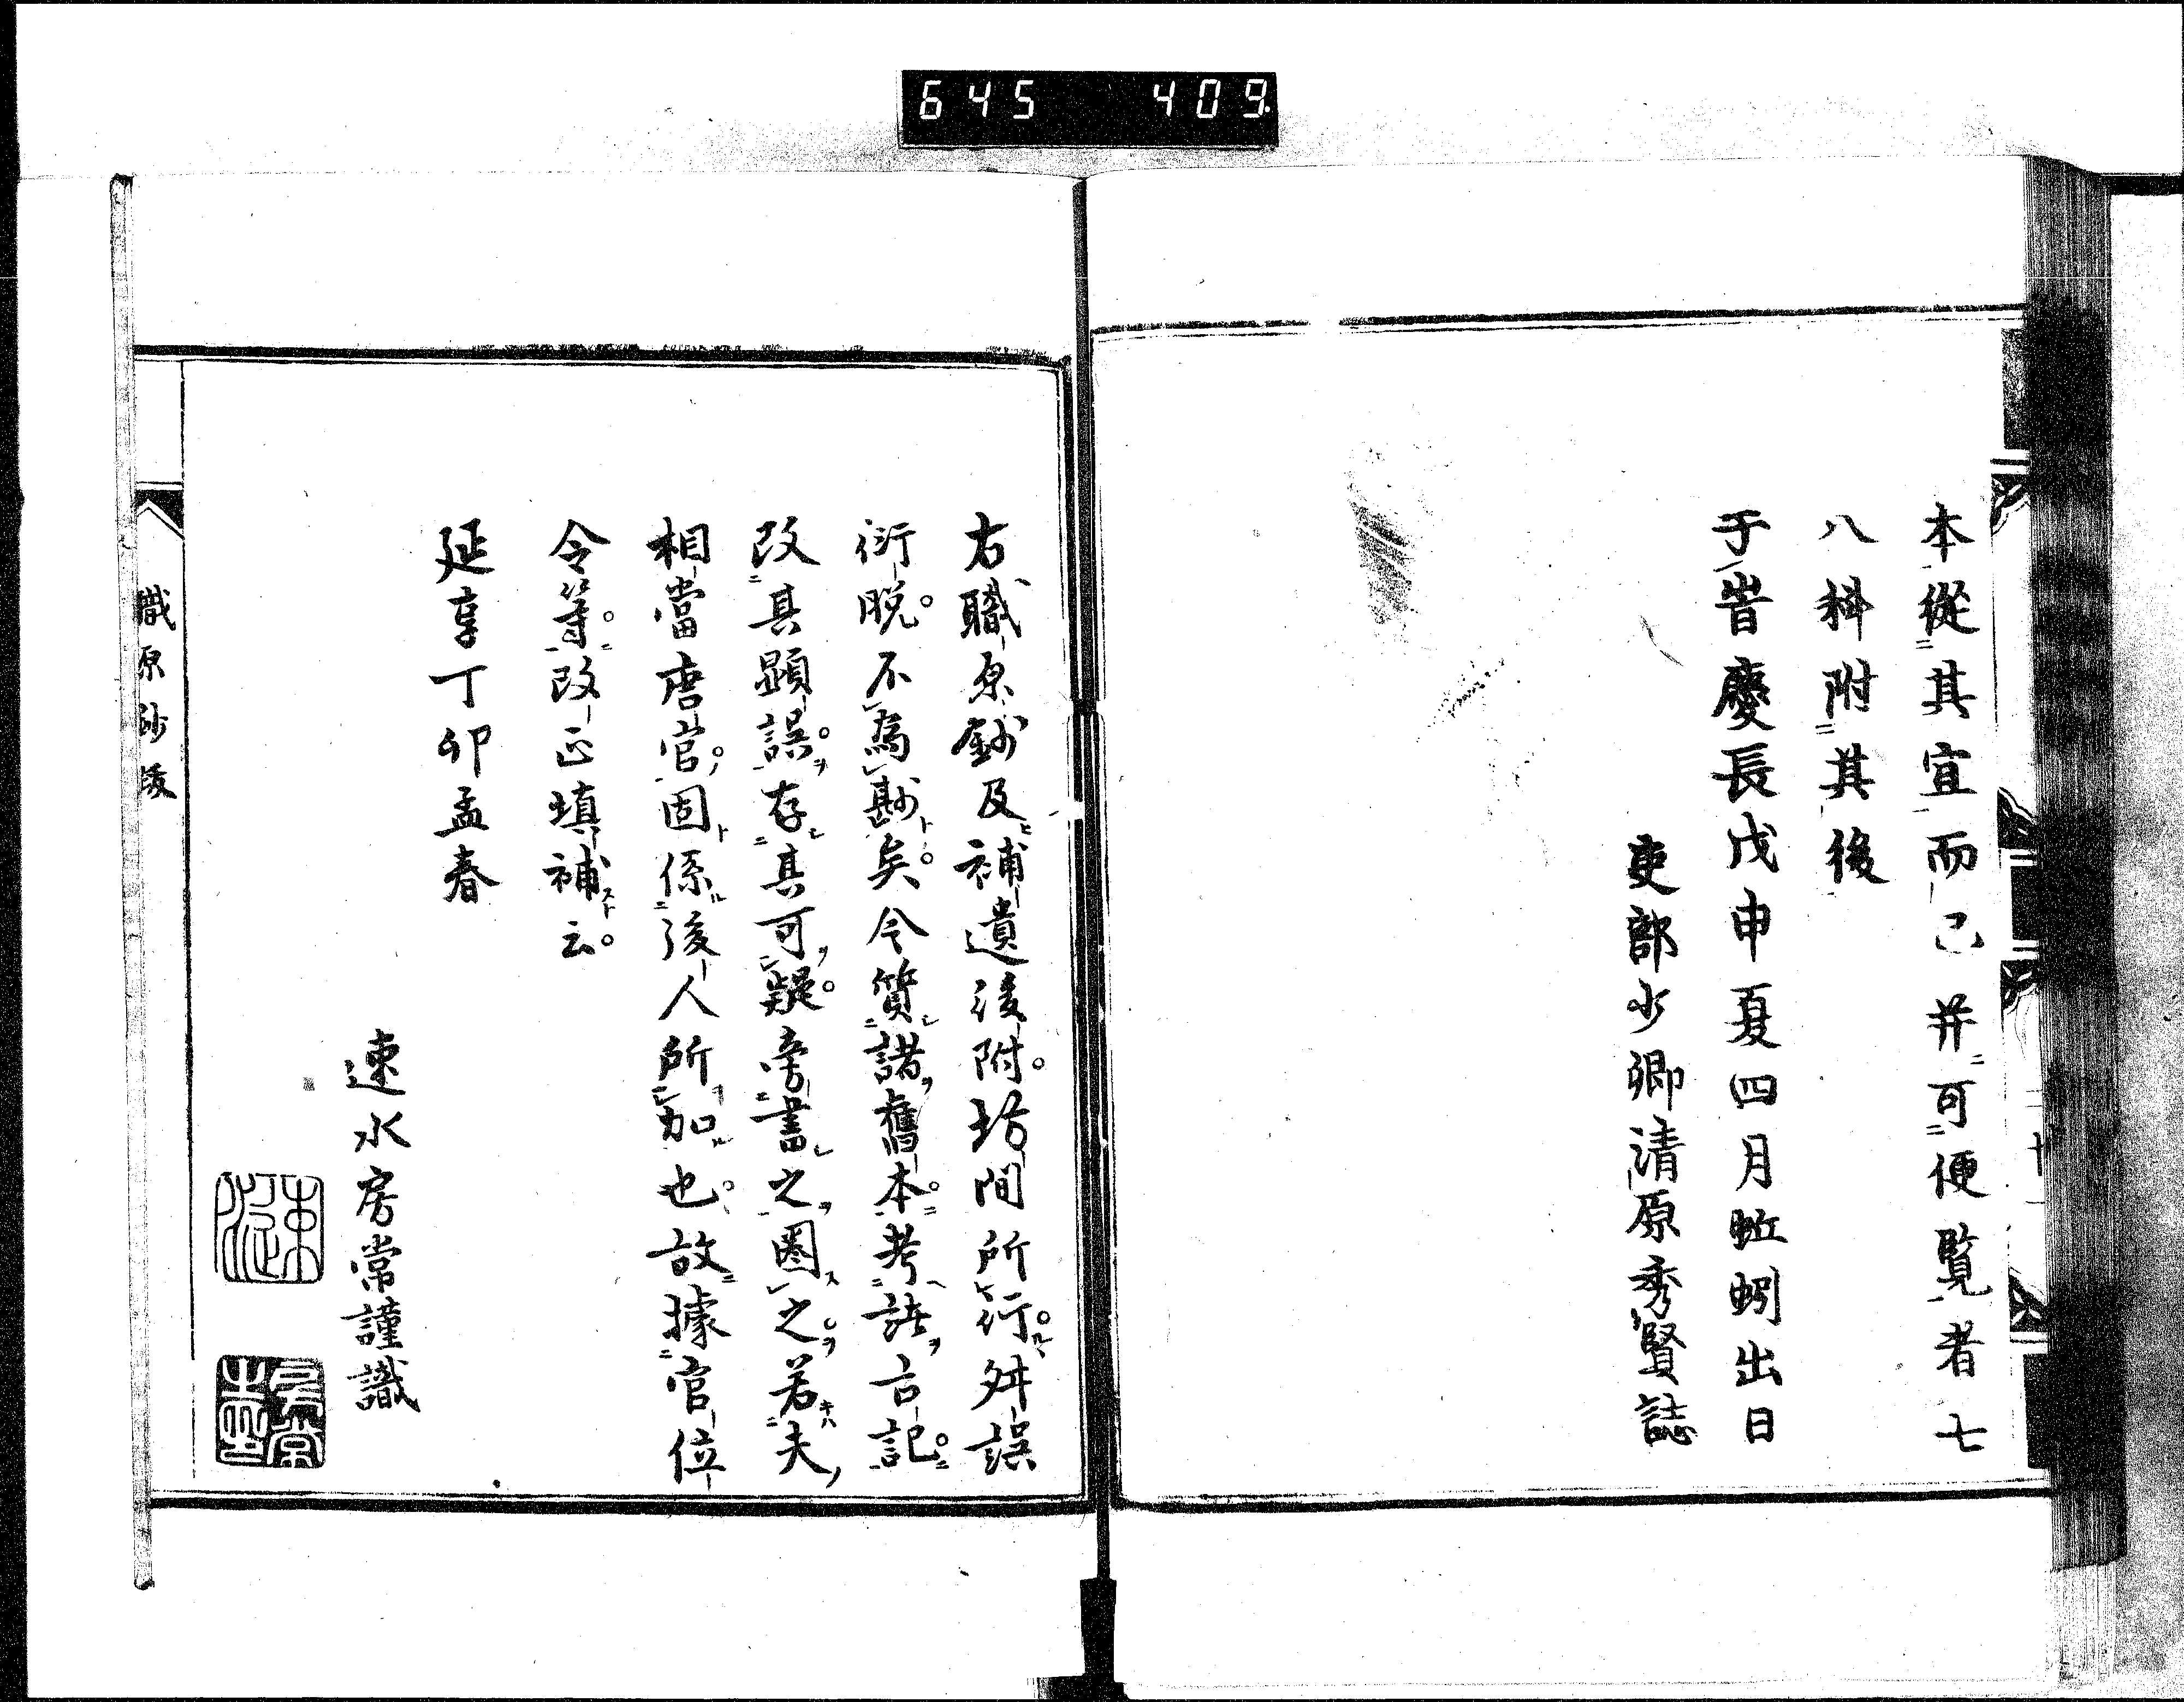 645 409
本從其宜而已并可便覽者七
八科附其後
于旹慶長戊申夏四月蚯蚓出日
吏部少卿清原秀賢誌
右職原鈔及補遺後附坊間所行舛誤
衍脱不為尠矣今質諸舊本考諸古記
改其顕誤存其可疑旁書之圏之若夫
相當唐官固係後人所加也故據官位
令等改正填補云
延享丁卯孟春
速水房常謹識
職原鈔後
速水
房常